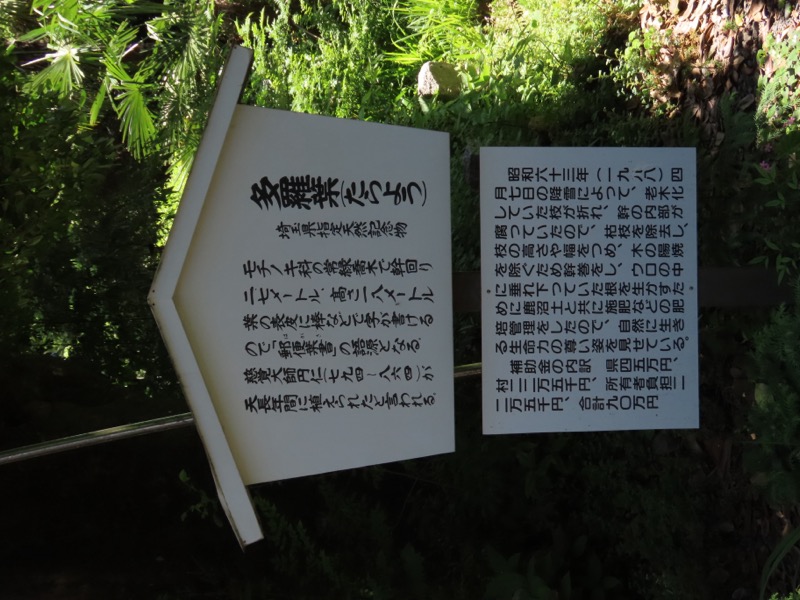 多羅葉(たらよう)
埼玉県指定天然記念物
モチノキ科の常緑喬木で幹回り
二・七メートル、高さ一八メートル
葉の表皮に棒などで字が書ける
ので「郵便葉書」の語源となる。
慈覚大師円仁(七九四〜八六四)が
天長年間に植えられたと言われる。
昭和六十三年(一九八八)四
月七日の降雪によって、老木化
していた枝が折れ、幹の内部が
腐っていたので、枯枝を除去し、
枝の高さや幅をつめ、木の陽焼
を除ぐため幹巻をし、ウロの中
に垂れ下っていた根を生かすた
めに鹿沼土と共に施肥などの肥
培管理をしたので、自然に生き
る生命力の尊い姿を見せている。
補助金の内訳 県四五万円、
村二二万五千円、所有者負担二
二万五千円、合計九〇万円